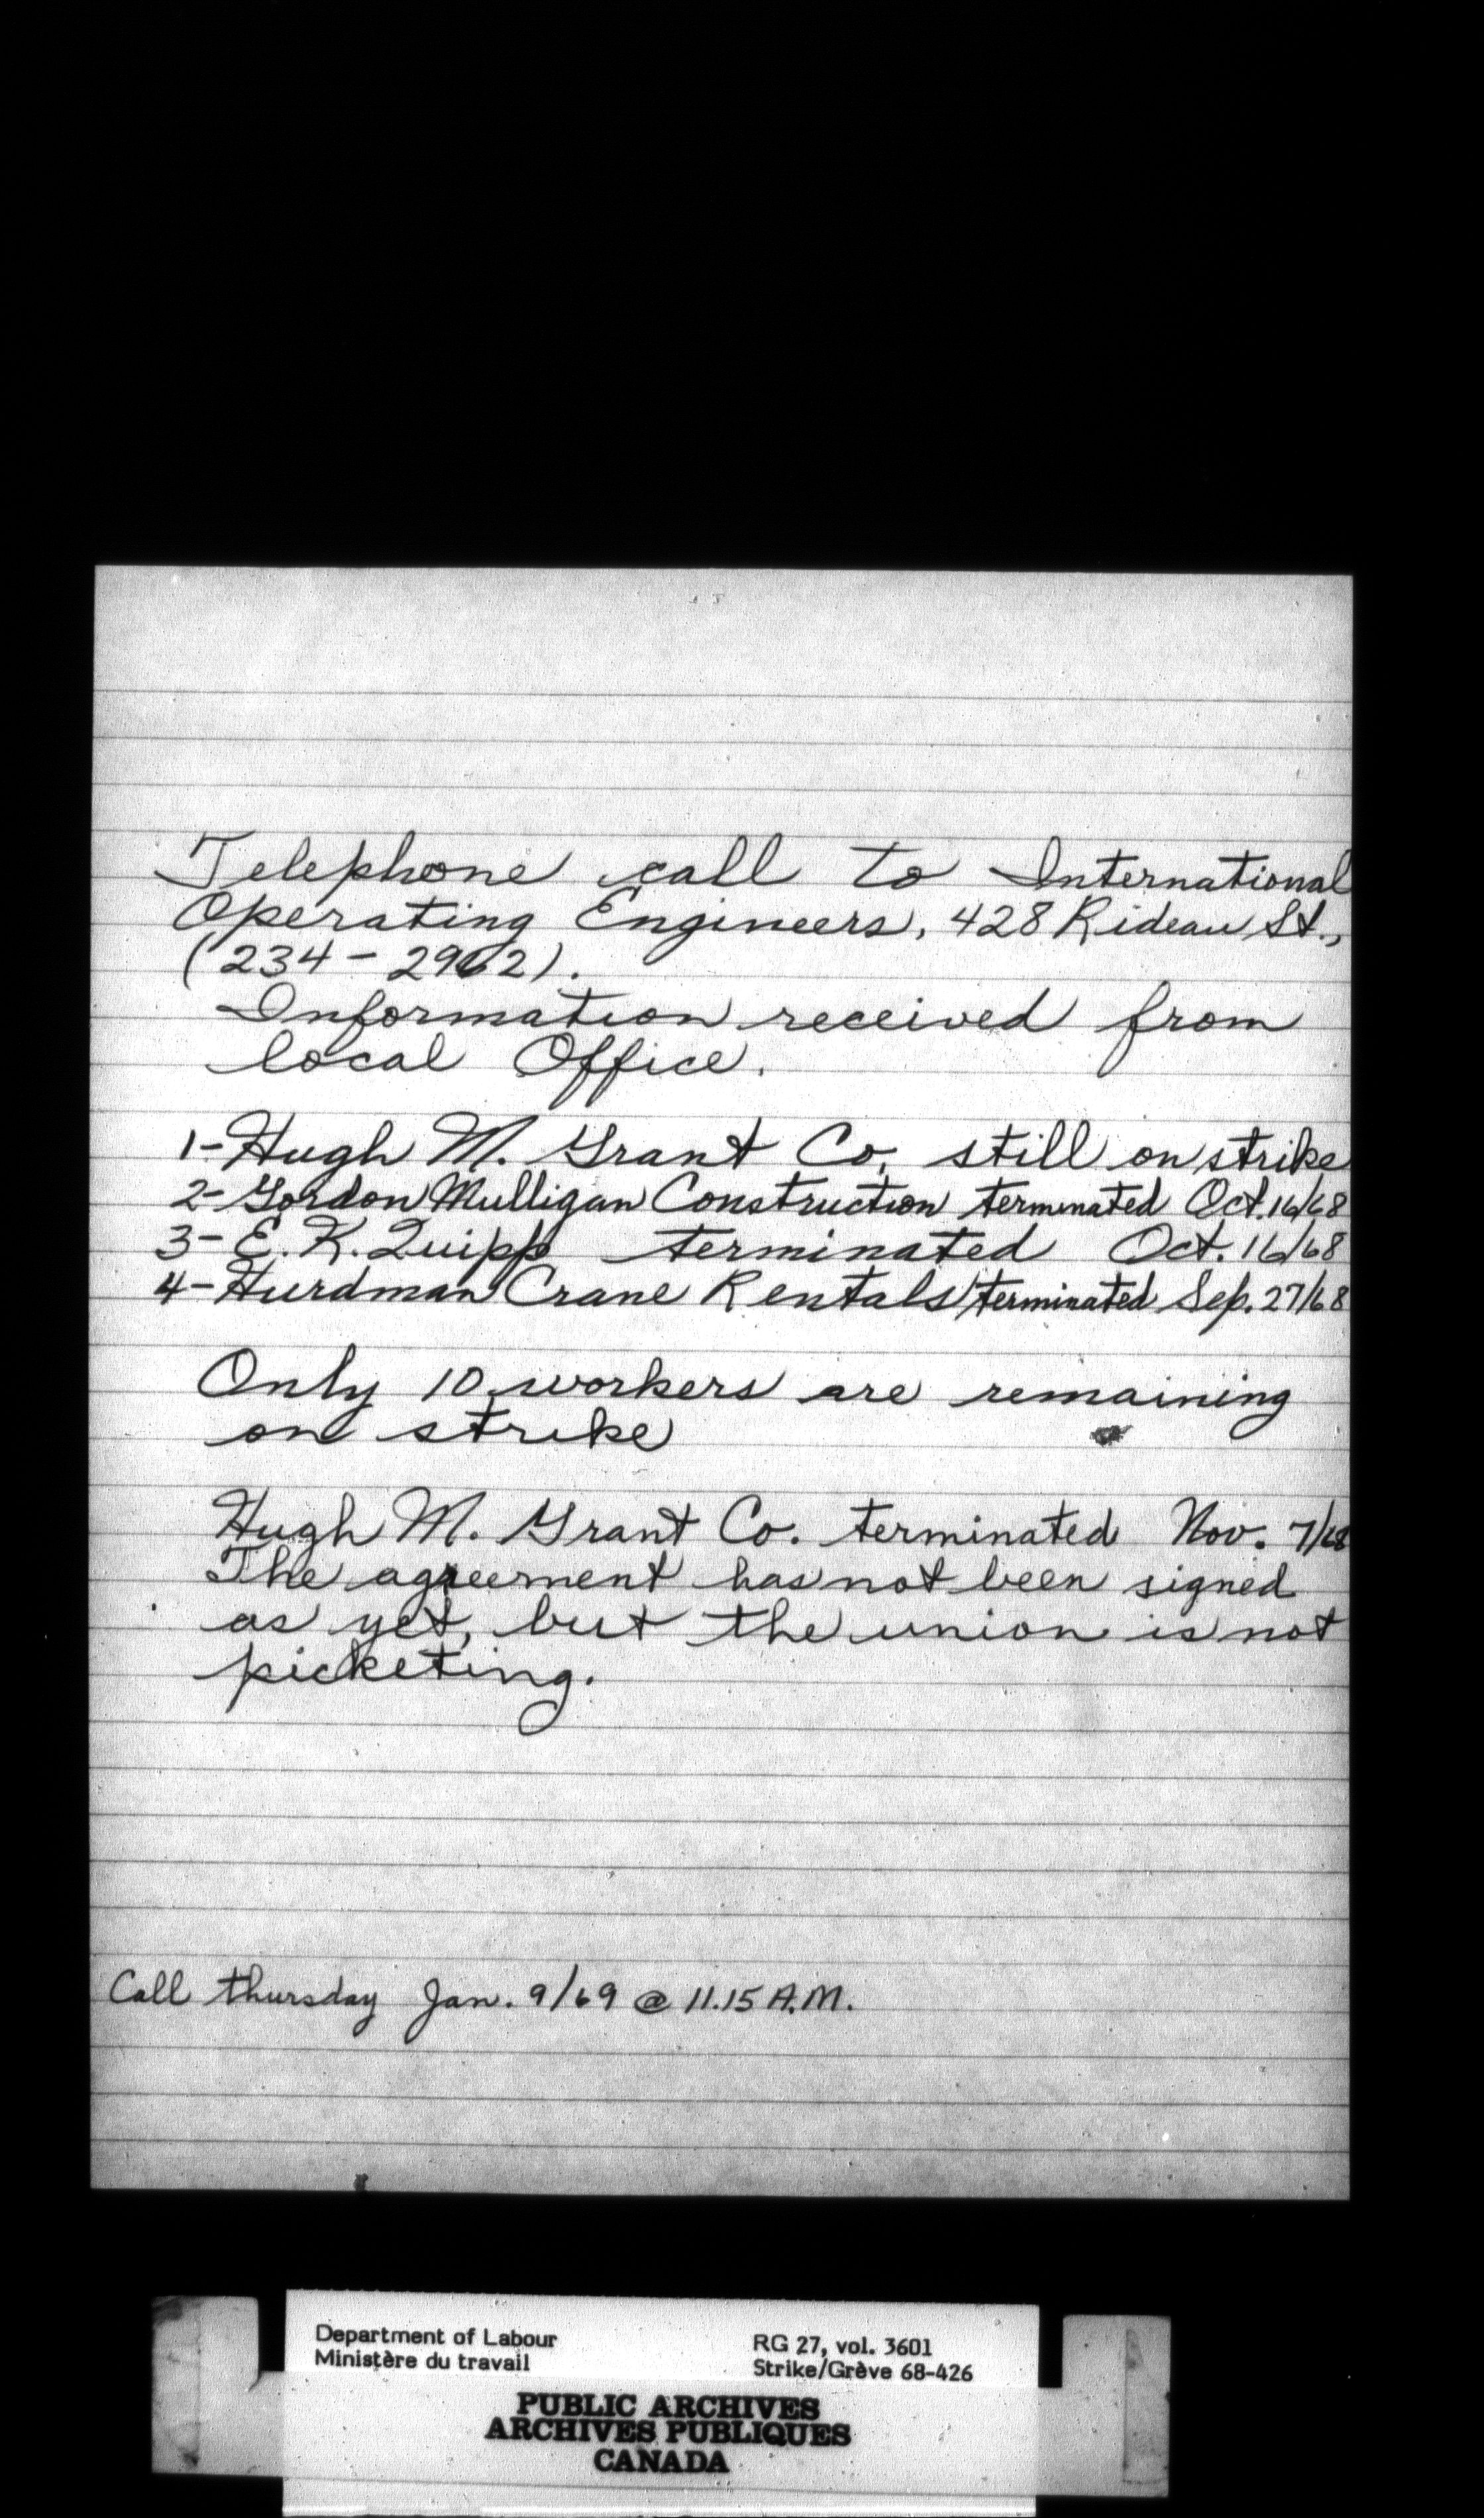 Telephone call to International
Operating Engineers, 428 Rideau St.,
(234-2962).
Information received from
local Office.
1- Hugh M. Grant Co. still on strike
2- Gordon Mulligan Construction terminated Oct. 16/68
3- E. K. Quipp terminated Oct. 16/68
4- Hurdman Crane Rentals terminated Sep. 27/68
Only 10 workers are remaining
on strike
Hugh M. Grant Co. terminated Nov. 7/68
The agreement has not been signed
as yet, but the union is not
picketing.
Call thursday Jan. 9/69 @ 11.15 A.M.
Department of Labour
Ministère du travail
RG 27, vol. 3601
Strike/Grève 68-426
PUBLIC ARCHIVES
ARCHIVES PUBLIQUES
CANADA